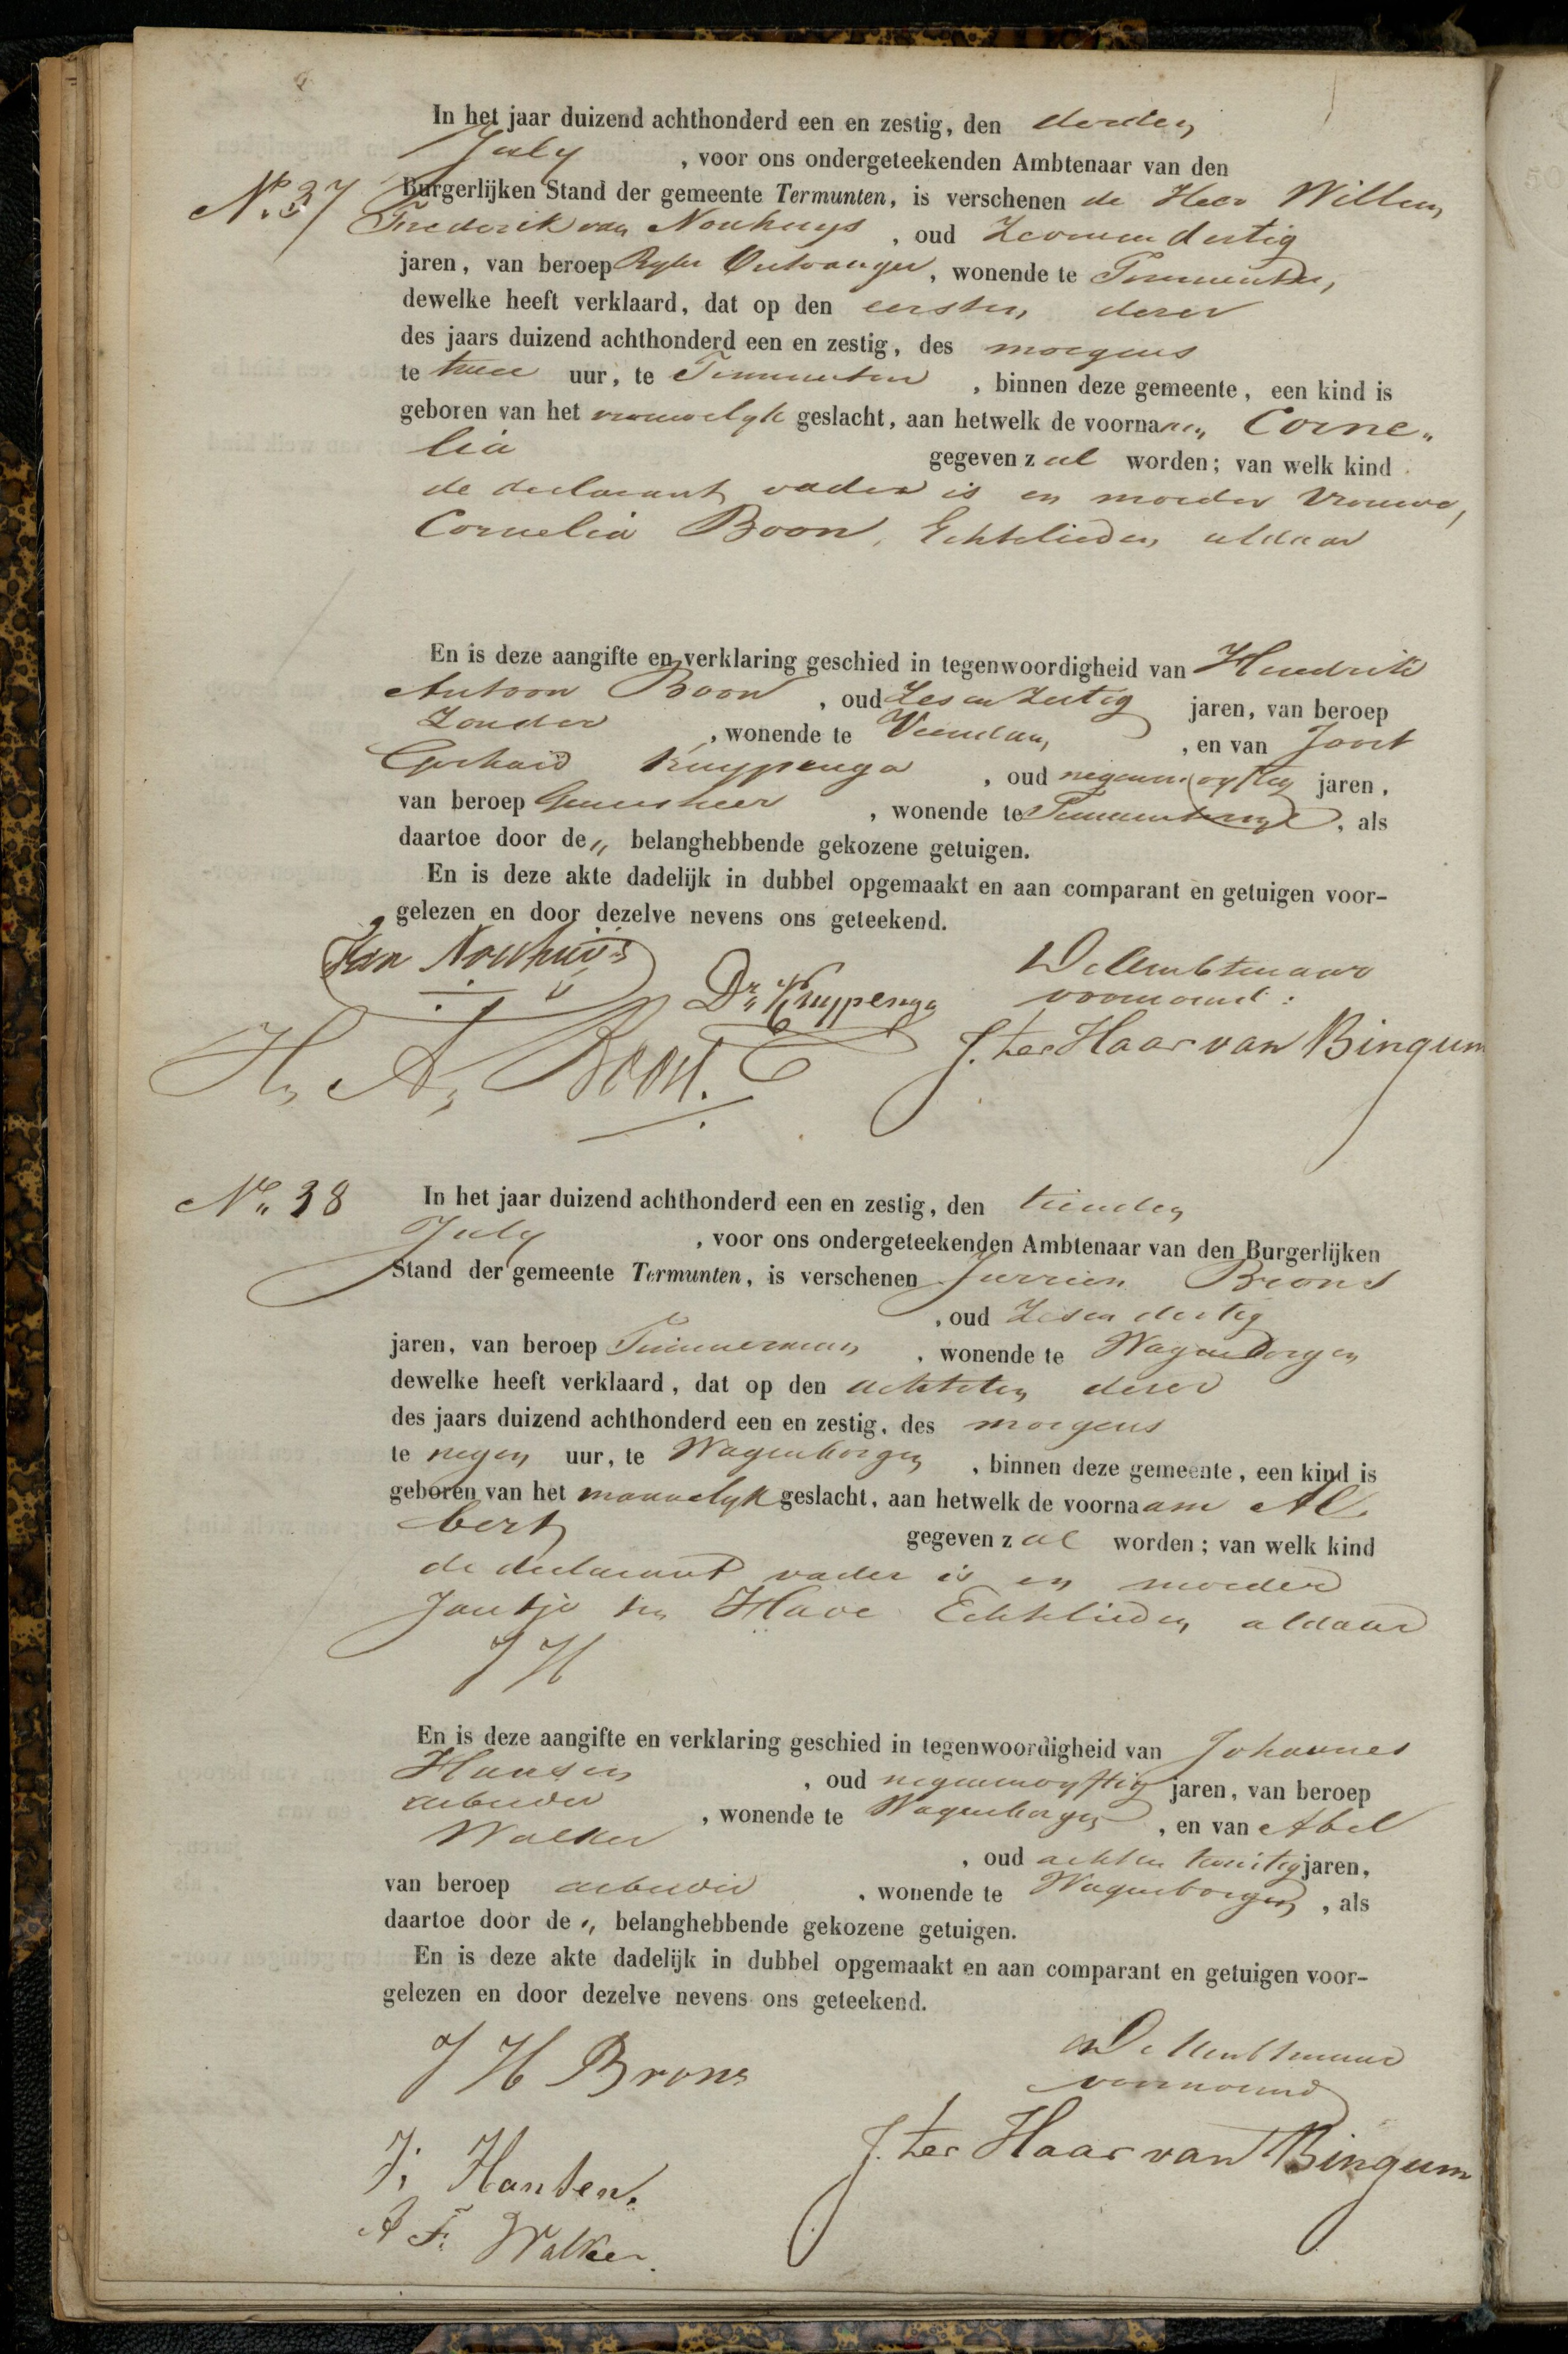 In het jaar duizend achthonderd een en zestig, den derden
July , voor ons ondergeteekenden Ambtenaar van den
No. 37 Burgerlijken Stand der gemeente Termunten, is verschenen de Heer Willem
Frederik van Nouhuys , oud Zevenendertig
jaren, van beroep Ryks Ontvanger, wonende te Termunten,
dewelke heeft verklaard, dat op den eersten dezer
des jaars duizend achthonderd een en zestig, des morgens
te twee uur, te Termunten , binnen deze gemeente, een kind is
geboren van het vrouwelyk geslacht, aan hetwelk de voornaam Corne„
lia gegeven zal worden; van welk kind
de declarant vader is en moeder Vrouwe,
Cornelia Boon, Echtelieden aldaar
En is deze aangifte en verklaring geschied in tegenwoordigheid van Hendrik
Antoon Boon , oud Zes en Zestig jaren, van beroep
Zonder , wonende te Veendam , en van Joost
Gerhard Kuypenga , oud negenenvyftig jaren,
van beroep Geneesheer , wonende te Termunterzyl, als
daartoe door de „ belanghebbende gekozene getuigen.
En is deze akte dadelijk in dubbel opgemaakt en aan comparant en getuigen voor-
gelezen en door dezelve nevens ons geteekend.
Van Nouhuijs
Dr. Kuypenga
De Ambtenaar
voornoemd:
H. A. Boon.
J. ter Haar van Bingum
No. 38 In het jaar duizend achthonderd een en zestig, den tienden
July , voor ons ondergeteekenden Ambtenaar van den Burgerlijken
Stand der gemeente Termunten, is verschenen Jurrien Brons
, oud Zesendertig
jaren, van beroep Timmerman , wonende te Wagenborgen
dewelke heeft verklaard, dat op den achtsten dezer
des jaars duizend achthonderd een en zestig, des morgens
te negen uur, te Wagenborgen , binnen deze gemeente, een kind is
geboren van het mannelyk geslacht, aan hetwelk de voornaam Al„
bert gegeven zal worden; van welk kind
de declarant vader is en moeder
Jantje ten Have Echtelieden aldaar
J H
En is deze aangifte en verklaring geschied in tegenwoordigheid van Johannes
Hansen , oud negenenvyftig jaren, van beroep
arbeider , wonende te Wagenborgen , en van Abel
Walker , oud achten twintig jaren,
van beroep arbeider , wonende te Wagenborgen , als
daartoe door de „ belanghebbende gekozene getuigen.
En is deze akte dadelijk in dubbel opgemaakt en aan comparant en getuigen voor-
gelezen en door dezelve nevens ons geteekend.
J H Brons
De Ambtenaar
voornoemd
J. Hansen.
J. ter Haar van Bingum
A F. Walker.